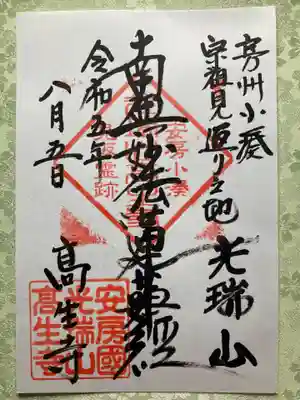 房州小湊
宗祖見返り之地
光瑞山
南無妙法蓮華経
令和五年
八月五日
高生寺
安房小湊
霊跡
安房國
光瑞山
高生寺